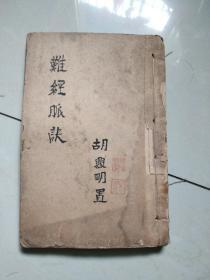 難經脈訣
胡興明置